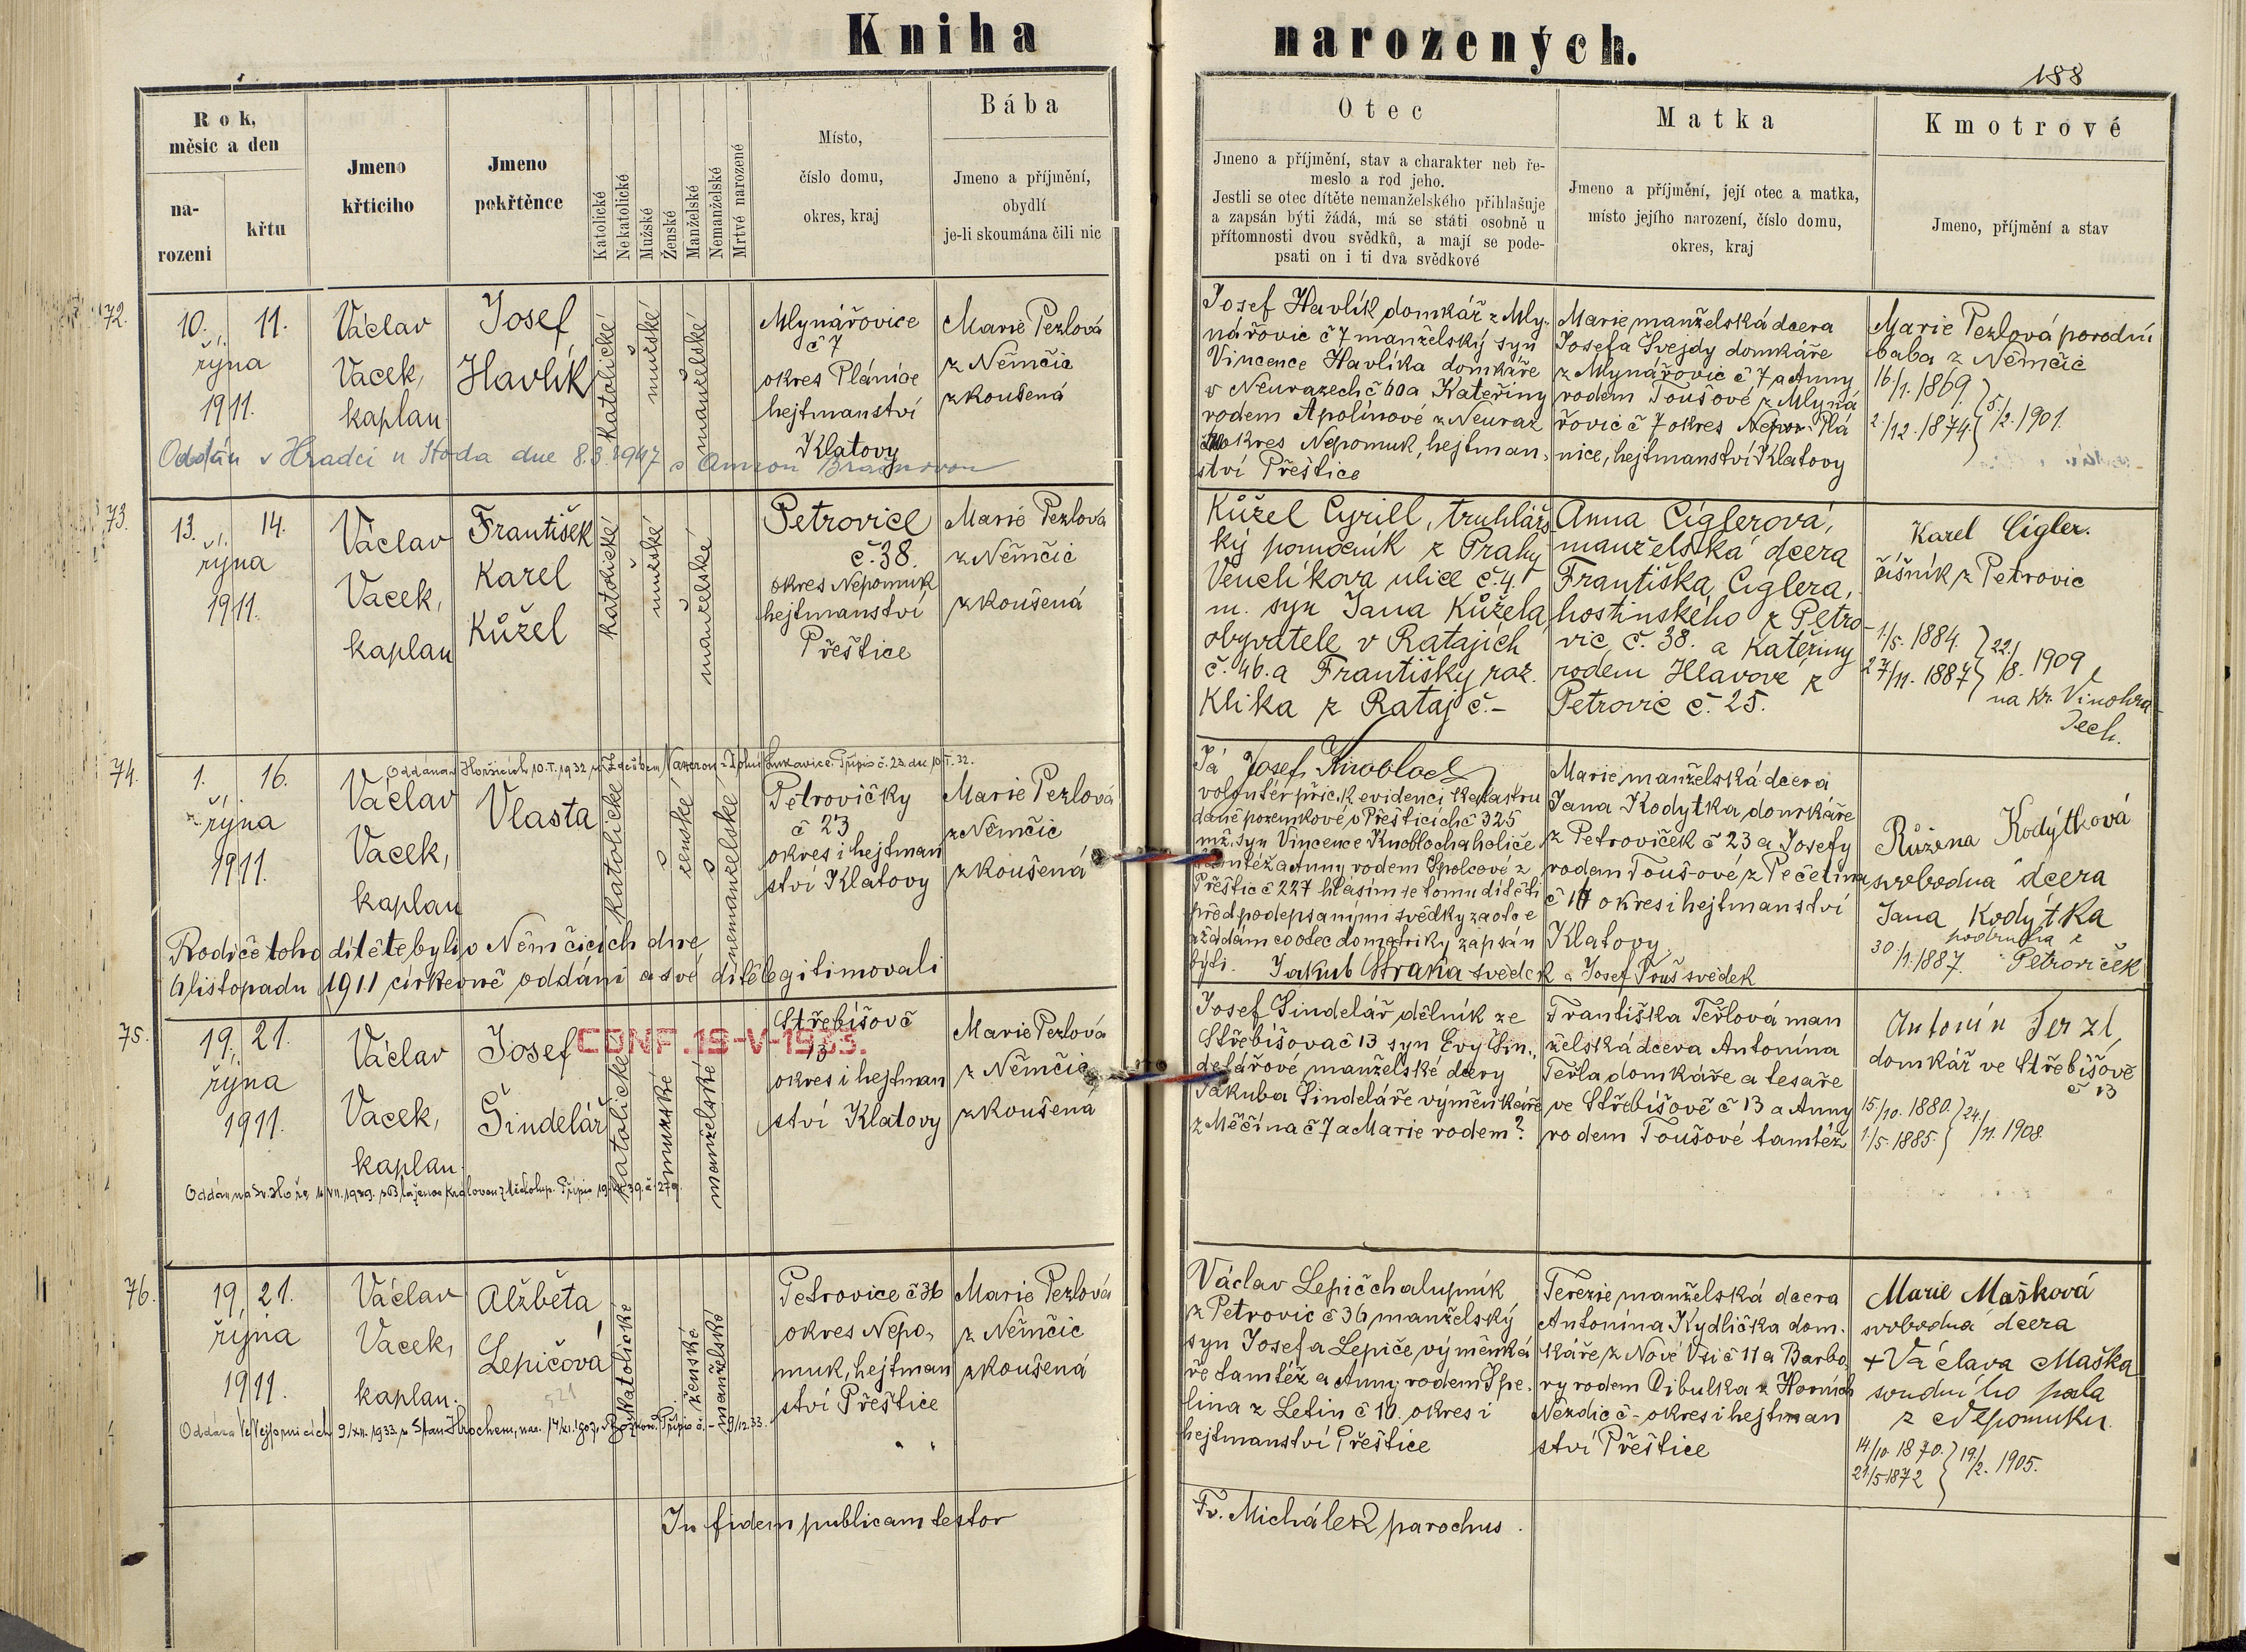 Kniha narozených.
188
Rok, měsíc a den
narozeni
křtu
Jmeno křticiho
Jmeno pokřtěnce
Katolické
Nekatolické
Mužské
Ženské
Manželské
Nemanželské
Mrtvě narozené
Místo,
číslo domu,
okres, kraj
Bába
Jmeno a příjmění,
obydlí
je-li skoumána čili nic
Otec
Jmeno a příjmění, stav a charakter neb ře-
meslo a rod jeho.
Jestli se otec dítěte nemanželského přihlašuje
a zapsán býti žádá, má se státi osobně u
přítomnosti dvou svědků, a mají se pode-
psati on i ti dva svědkové
Matka
Jmeno a příjmění, její otec a matka,
místo jejího narození, číslo domu,
okres, kraj
Kmotrové
Jmeno, příjmění a stav
72.
10. 11.
října
1911.
Václav
Vacek,
kaplan
Josef
Havlík
katolické
mužské
manželské
Mlynářovice
č 7
okres Plánice
hejtmanství
Klatovy
Marie Pezlová
z Němčic
zkoušená
Oddán v Hradci u Stoda dne 8.3.1947 s Annou
Josef Havlík domkář z Mly-
nářovic č 7 manželský syn
Vincence Havlíka domkáře
v Neurazech č 60 a Kateřiny
rodem Apolínové z Neuraz
okres Nepomuk, hejtman-
ství Přeštice
Marie manželská dcera
Josefa Švejdy domkáře
z Mlynářovic č 7 a Anny
rodem Toušové z Mlyná
řovic č 7 okres Plá
nice, hejtmanství Klatovy
Marie Pezlová porodní
baba z Němčic
16./1. 1869.
2./12. 1874. } 5./2. 1901.
73.
13. 14.
října
1911.
Václav
Vacek,
kaplan
František
Karel
Kůžel
katolické
mužské
manželské
Petrovice
č. 38.
okres Nepomuk
hejtmanství
Přeštice
Marie Pezlová
z Němčic
zkoušená
Kůžel Cyrill, truhlářs
ký pomocník z Prahy
Venclíkova ulice č. 4.
m. syn Jana Kůžela,
obyvatele v Ratajích
č. 46. a Františky roz.
Klika z Rataj č. –
Anna Ciglerová,
manželská dcera
Františka Ciglera,
hostinského z Petro-
vic, č. 38. a Kateřiny
rodem Hlavove z
Petrovic č. 25.
Karel Cigler.
číšník z Petrovic
1./5. 1884.
27/11. 1887 } 22./8. 1909
na Kr. Vinohra-
dech.
74.
1. 16.
října
1911.
Václav
Vacek,
kaplan
Vlasta
katolické
ženské
nemanželské
Petrovičky
č 23
okres i hejtman
ství Klatovy
Marie Pezlová
z Němčic
zkoušená
Rodiče toho dítěte byli v Němčicích dne
6 listopadu 1911 církevně oddáni a své dítě legitimovali
Já Josef Knobloch
volontér přic. k evidenci katastru
daně pozemkové v Přešticích č 325
mž. syn Vincence Knoblocha holiče
tamtéž a Anny rodem Špolcové z
Přeštic č 227 hlásím se tomu dítěti
před podepsanými svědky za otce
a žádám co otec do matriky zapsán
býti. Jakub Straka svědek a Josef Touš svědek
Marie manželská dcera
Jana Kodytka domkáře
z Petroviček č 23 a Josefy
rodem Toušové z Pečetína
č 14 okres i hejtmanství
Klatovy
Růžena Kodýtková
svobodna dcera
Jana Kodýtka
podruha z
Petroviček
30./1. 1887.
75.
19. 21.
října
1911.
Václav
Vacek,
kaplan.
Josef
Šindelář
CONF. 19-V-1933.
katolické
mužské
manželské
Střebišově
13
okres i hejtman
ství Klatovy
Marie Pezlová
z Němčic
zkoušena
Josef Šindelář dělník ze
Střebišova č 13 syn Evy Šin-
delářové manželské dcery
Jakuba Šindeláře výměnkáře
z Měčína č 7 a Marie rodem ?
Františka Terlová man
želská dcera Antonína
Terla domkáře a tesaře
ve Střebišově č 13 a Anny
rodem Toušové tamtéž
Antonín Terzl,
domkář ve Střebišově
č 13
15./10. 1880.
1./5. 1885. } 24./11. 1908.
76.
19. 21.
října
1911.
Václav
Vacek,
kaplan.
Alžběta
Lepičová
katolické
ženské
manželské
Petrovice č 36
okres Nepo-
muk, hejtman
ství Přeštice
Marie Pezlová
z Němčic
zkoušená
Václav Lepič chalupník
z Petrovic č 36, manželský
syn Josefa Lepiče, výměnká
ře tamtéž a Anny rodem Špe-
lina z Letin č 10. okres i
hejtmanství Přeštice
Terezie manželská dcera
Antonína Kydlička dom-
káře z Nové Vsi č 11 a Barbo-
ry rodem Cibulka z Horních
Nezdic č – okres i hejtman
ství Přeštice
Marie Mašková
svobodna dcera
+ Václava Maška
soudního
z Nepomuku.
14/10. 1870.
21/5 1872 } 19./2. 1905.
In fidem publicam testor
Fr. Michálek parochus.